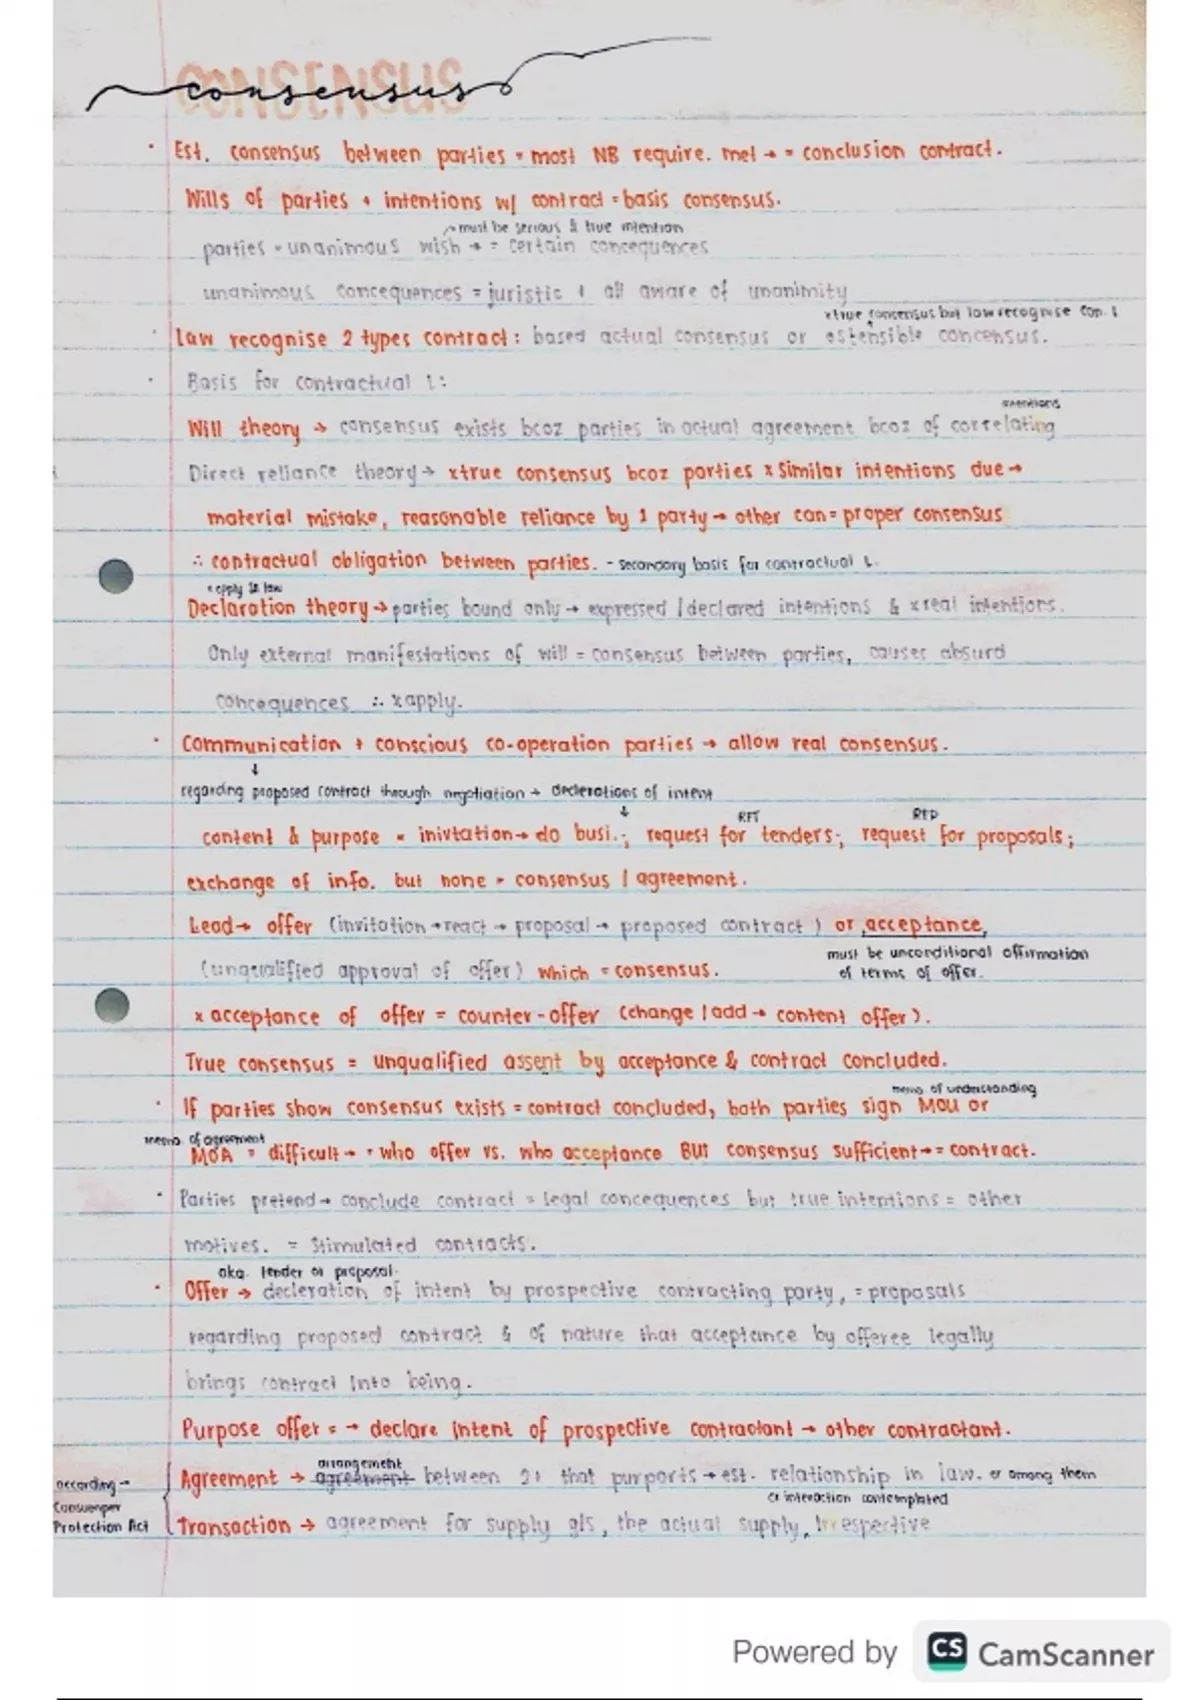 CONSENSUS
consensus
· Est. consensus between parties = most NB require. met → = conclusion contract.
Wills of parties + intentions w/ contract = basis consensus.
must be serious & true intention
parties = unanimous wish → = certain concequences
unanimous concequences = juristic + all aware of unanimity
x true consensus but law recognise con. L
· Law recognise 2 types contract: based actual consensus or ostensible concensus.
· Basis for contractual L:
intentions
Will theory → consensus exists bcoz parties in actual agreement bcoz of correlating
Direct reliance theory → x true consensus bcoz parties x similar intentions due →
material mistake, reasonable reliance by 1 party → other con = proper consensus
∴ contractual obligation between parties. - secondary basis for contractual L.
x apply SA law
Declaration theory → parties bound only → expressed / declared intentions & x real intentions.
Only external manifestations of will = consensus between parties, causes absurd
concequences ∴ x apply.
· Communication + conscious co-operation parties → allow real consensus.
↓
regarding proposed contract through negotiation → declerations of intent
↓ RFT RFP
content & purpose = inivtation → do busi.; request for tenders; request for proposals;
exchange of info. but none = consensus / agreement.
Lead → offer (invitation → react → proposal → proposed contract) or acceptance,
must be unconditional affirmation
(unqualified approval of offer) which = consensus.
of terms of offer.
x acceptance of offer = counter-offer (change / add → content offer).
True consensus = unqualified assent by acceptance & contract concluded.
memo of understanding
· If parties show consensus exists = contract concluded, both parties sign MOU or
memo. of agreement
MOA = difficult → · who offer vs. who acceptance BUT consensus sufficient → = contract.
· Parties pretend → conclude contract = legal concequences but true intentions = other
motives. = Stimulated contracts.
aka. tender or proposal.
· Offer → decleration of intent by prospective contracting party, = proposals
regarding proposed contract & of nature that acceptance by offeree legally
brings contract into being.
Purpose offer = → declare intent of prospective contractant → other contractant.
arrangement
Agreement → agreement between 2+ that purports → est. relationship in law. or among them
or interaction contemplated
according →
Consuemper
Protection Act
Transaction → agreement for supply g/s, the actual supply, Irrespective
Powered by CS CamScanner